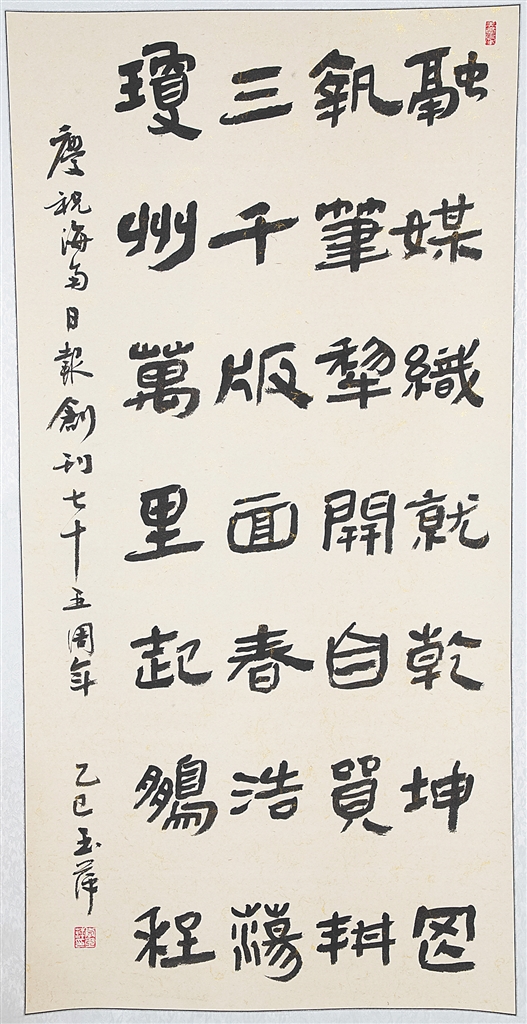 融媒織就乾坤圖
執筆犁開自貿耕
三千版面春浩蕩
瓊州萬里起鵬程
慶祝海南日報創刊七十五周年
乙巳玉萍